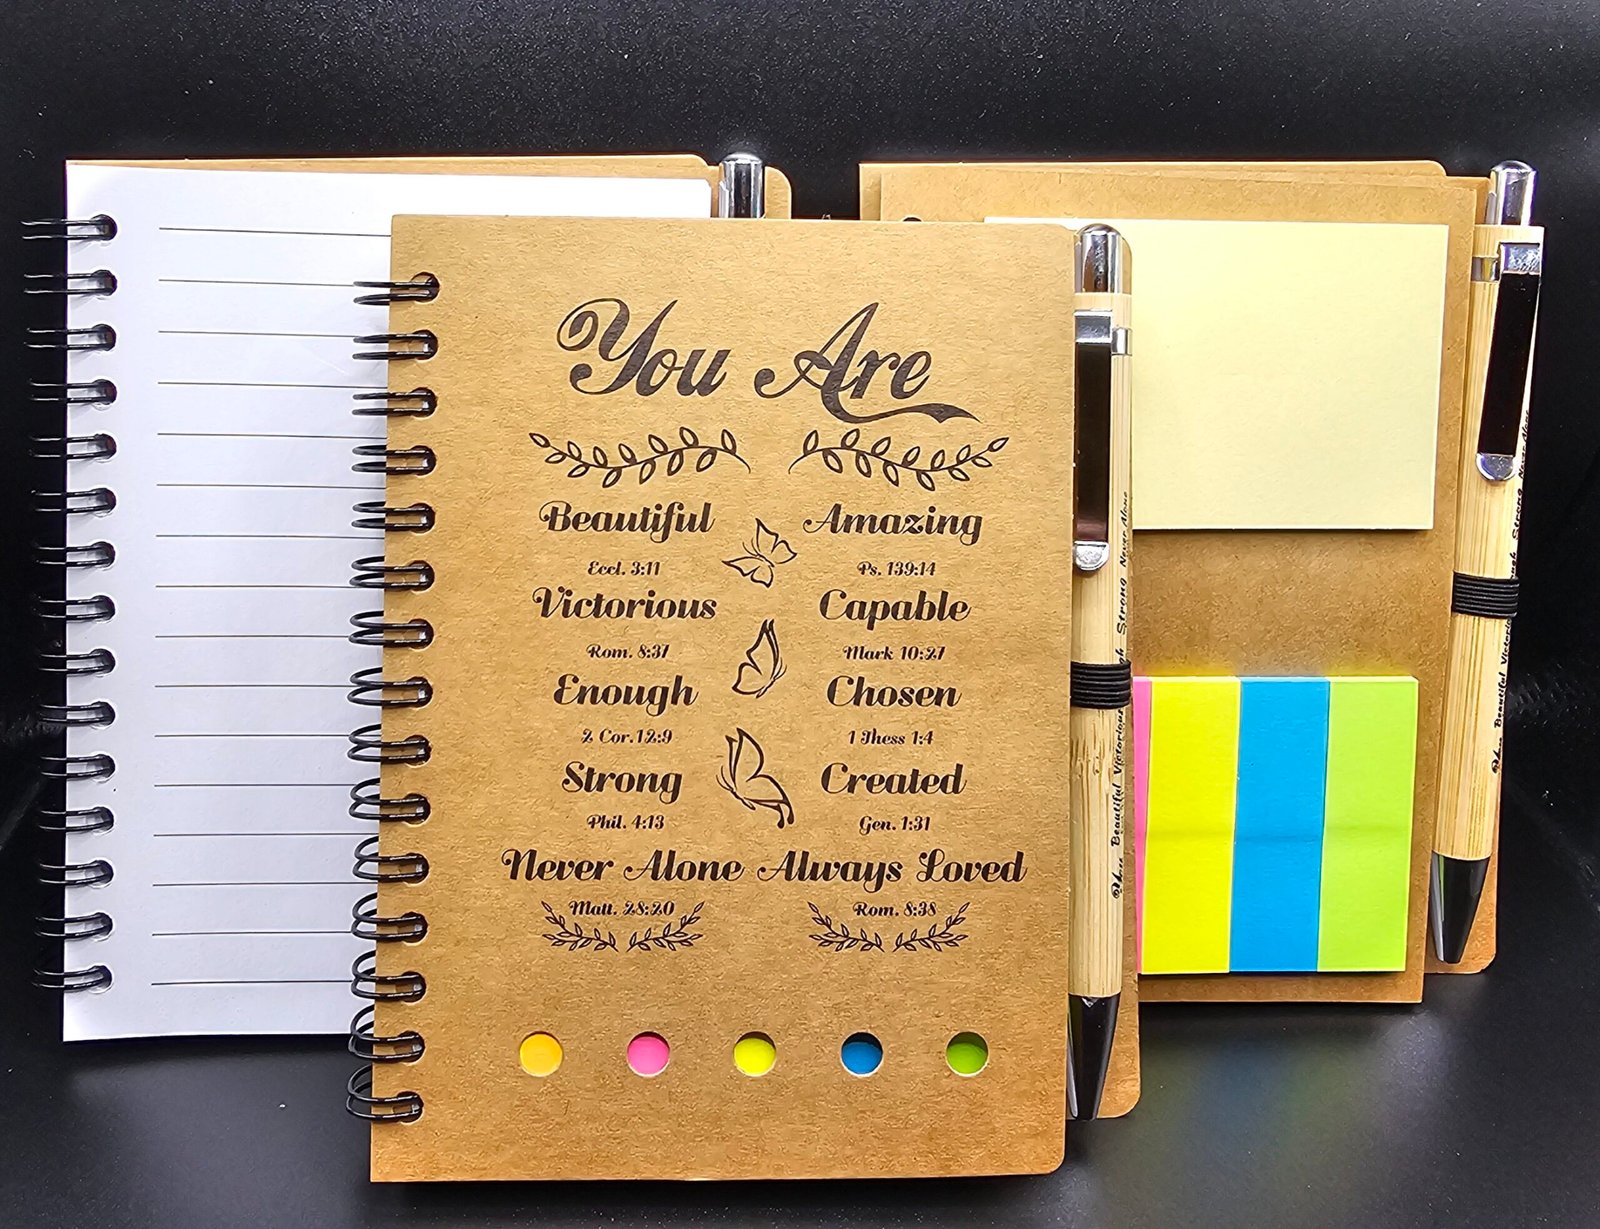 You Are
Beautiful Amazing
Eccl. 3:11 Ps. 139:14
Victorious Capable
Rom. 8:37 Mark 10:27
Enough Chosen
2 Cor.12:9 1 Thess 1:4
Strong Created
Phil. 4:13 Gen. 1:31
Never Alone Always Loved
Matt. 28:20 Rom. 8:38
Beautiful Victorious Strong Never Alone
Beautiful Victorious Strong Never Alone